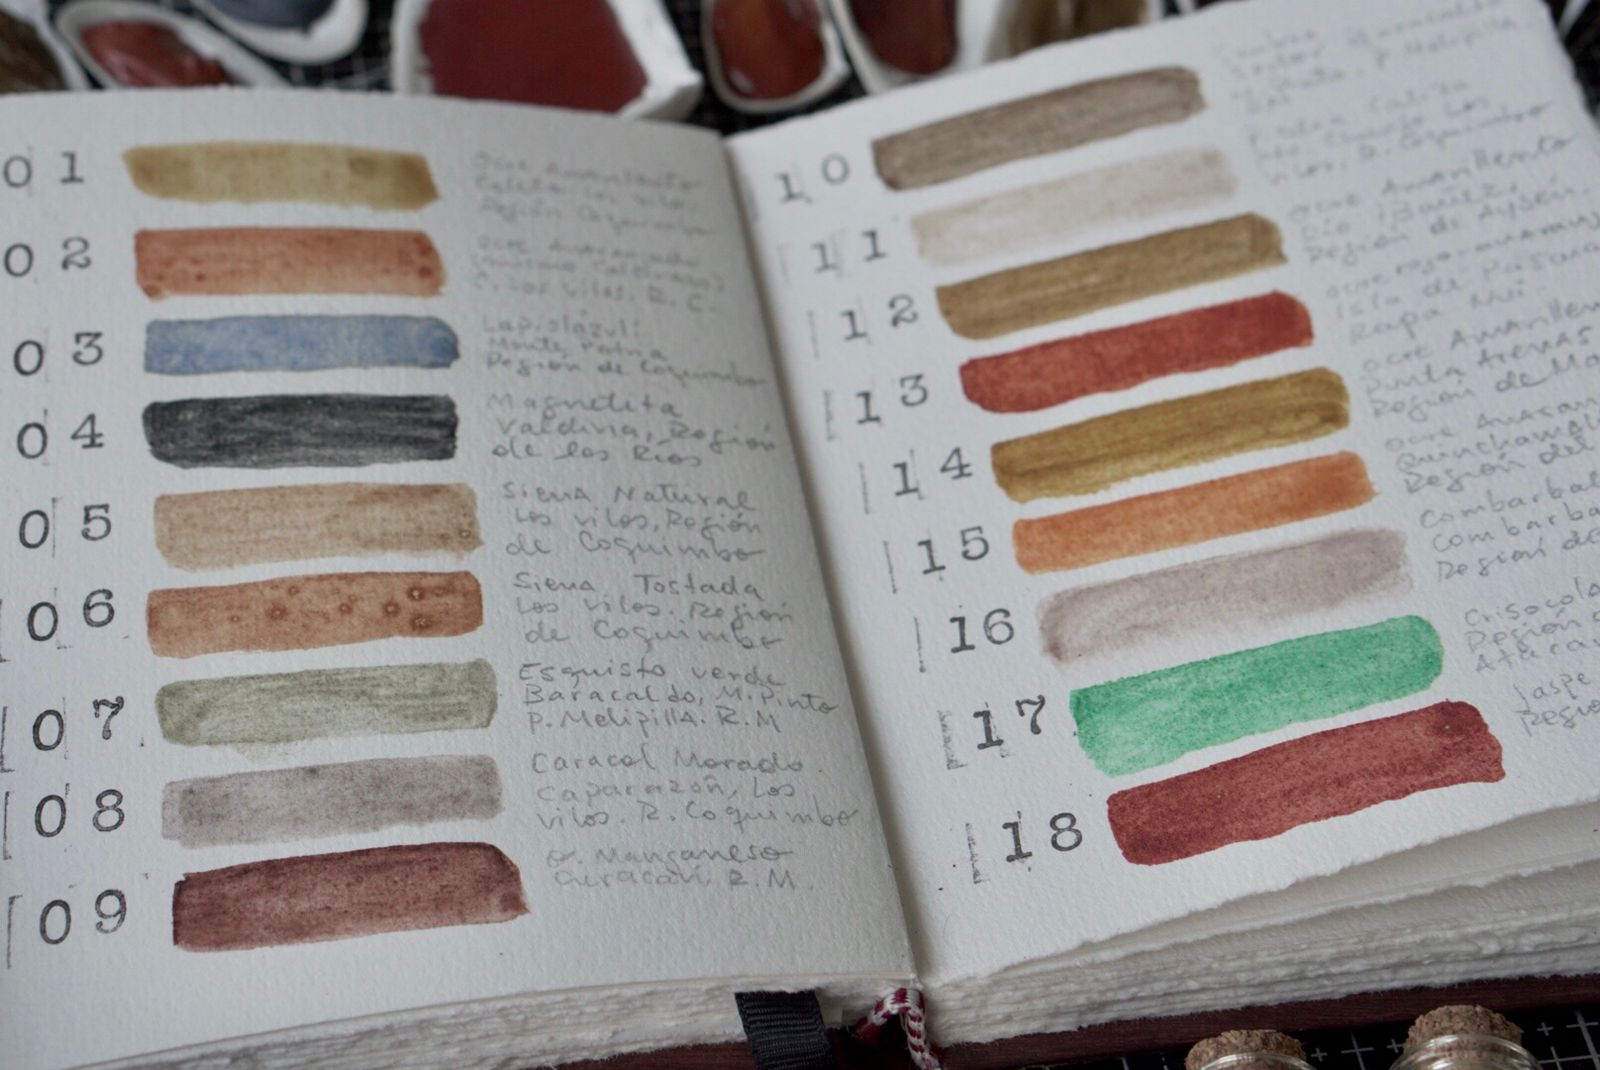 01
Ocre Amarillento
Caleta Los Vilos
Región Coquimbo
02
Ocre Anaranjado
C. Los Vilos. R. C.
03
Lapislázuli
Monte Patria
Región de Coquimbo
04
Magnetita
Valdivia, Región
de los Ríos
05
Siena Natural
Los Vilos, Región
de Coquimbo
06
Siena Tostada
Los Vilos. Región
de Coquimbo
07
Esquisto verde
Baracaldo, M. Pinto
P. Melipilla. R.M
08
Caracol Morado
Caparazón, Los
Vilos. R. Coquimbo
09
O. Manganeso
Curacaví, R.M.
10
P. Melipilla
11
Vilos, R. Coquimbo
12
Ocre Amarillento
Río Ibáñez,
Región de Aysén.
13
Isla de Pascua
Rapa Nui
14
Ocre Amarillen
Punta Arenas
Región de Ma
15
Ocre Anaran
Quinchamal
Región del
16
Combarbal
Combarba
Región de
17
Crisocola
Región
Ataca
18
Jaspe
Regio